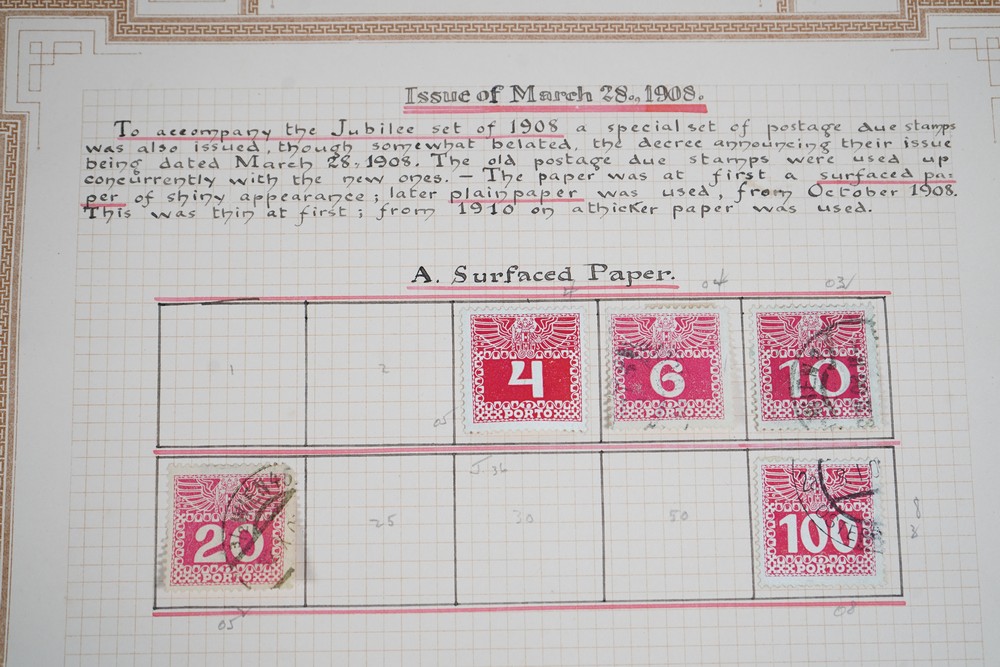 Issue of March 28., 1908.
To accompany the Jubilee set of 1908 a special set of postage due stamps
was also issued, though somewhat belated, the decree announcing their issue
being dated March 28, 1908. The old postage due stamps were used up
concurrently with the new ones. — The paper was at first a surfaced pa-
per of shiny appearance; later plain paper was used, from October 1908.
This was thin at first; from 1910 on a thicker paper was used.
A. Surfaced Paper.
04 03
1 2 4 6 10
PORTO PORTO PORTO
05
36
20 25 30 50 100
PORTO PORTO
8
3
05 08